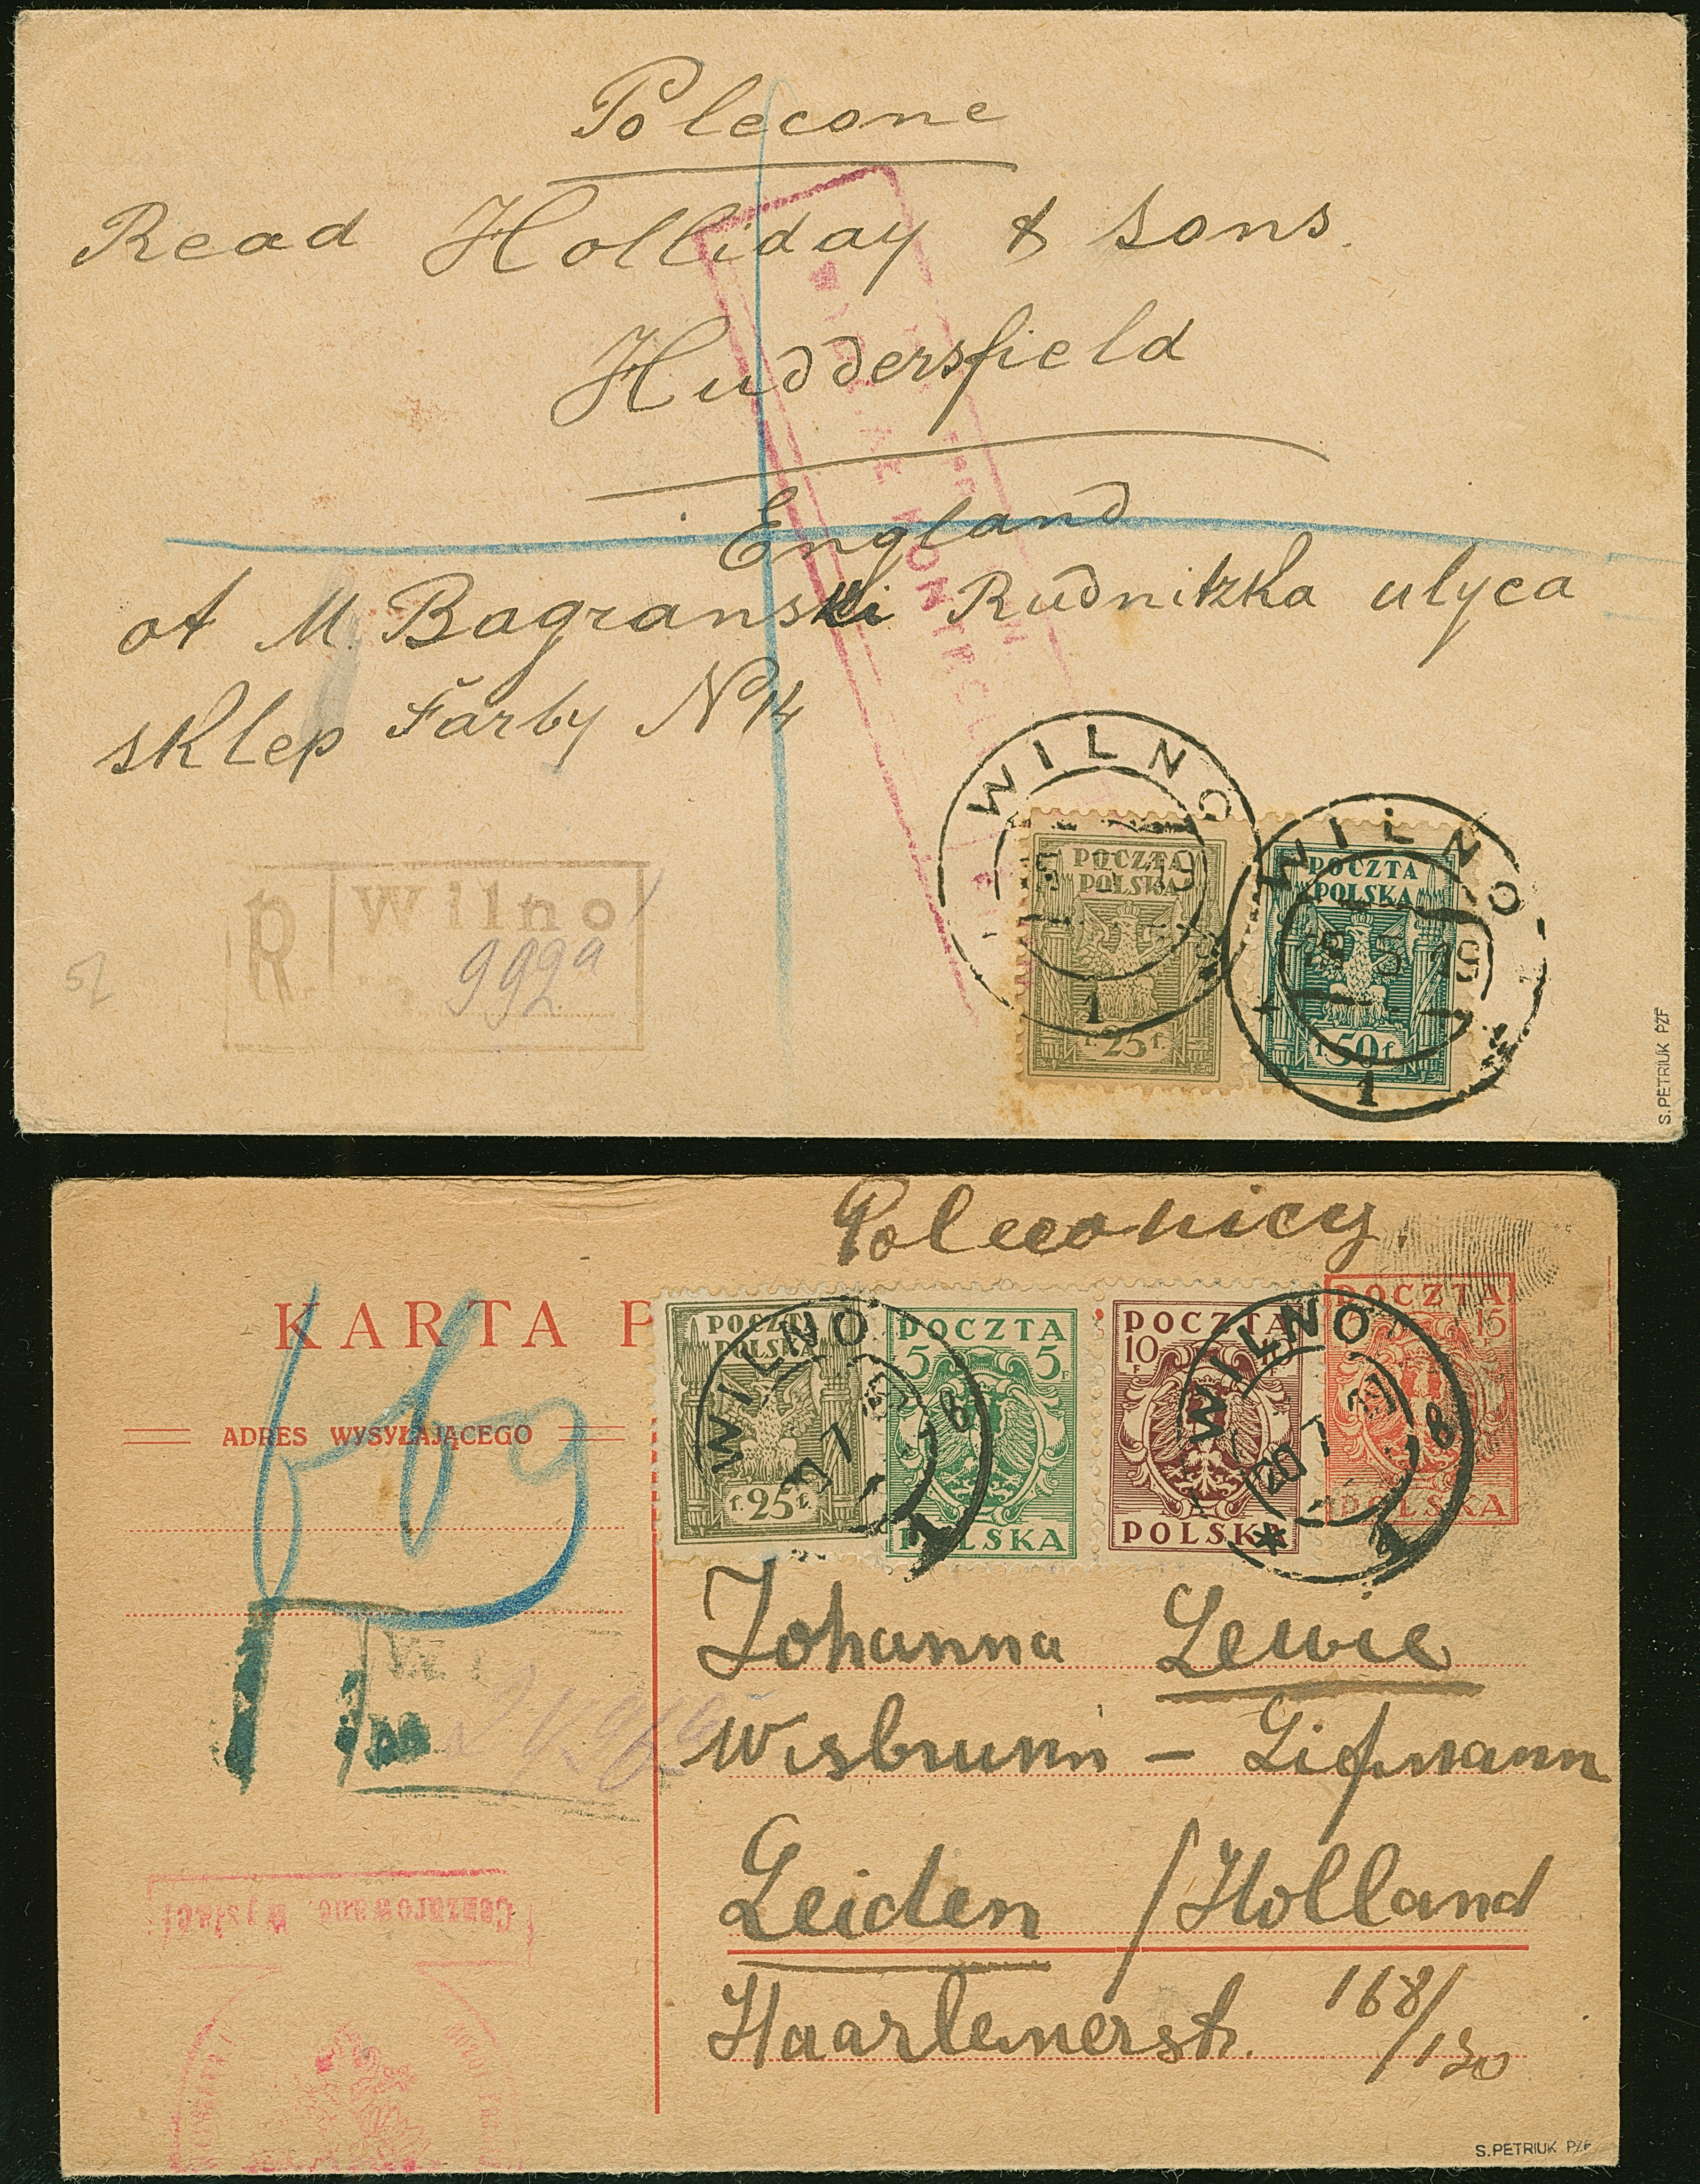 Polecone
Read Holliday & Sons.
Huddersfield
England
ot M. Bagranski Rudnitzka ulyca
sklep Farby N
WILNO
19
1
WILNO
19
1
POCZTA
POLSKA
f. 25 f.
POCZTA
POLSKA
f. 50 f.
R Wilno
992a
52
S.PETRIUK PZF
KARTA P
ADRES WYSYŁAJĄCEGO
POCZTA
POLSKA
f. 25 f.
POCZTA
5 5
F
POLSKA
POCZTA
10
F
POLSKA
POCZTA
15
F
POLSKA
WILNO
7
8
1
WILNO
20 7
8
1
Johanna Lewie
Wisbrunn - Lipmann
Leiden / Holland
Haarlemerstr. 168/130
Cenzurowane, Wysłać!
S.PETRIUK PZF